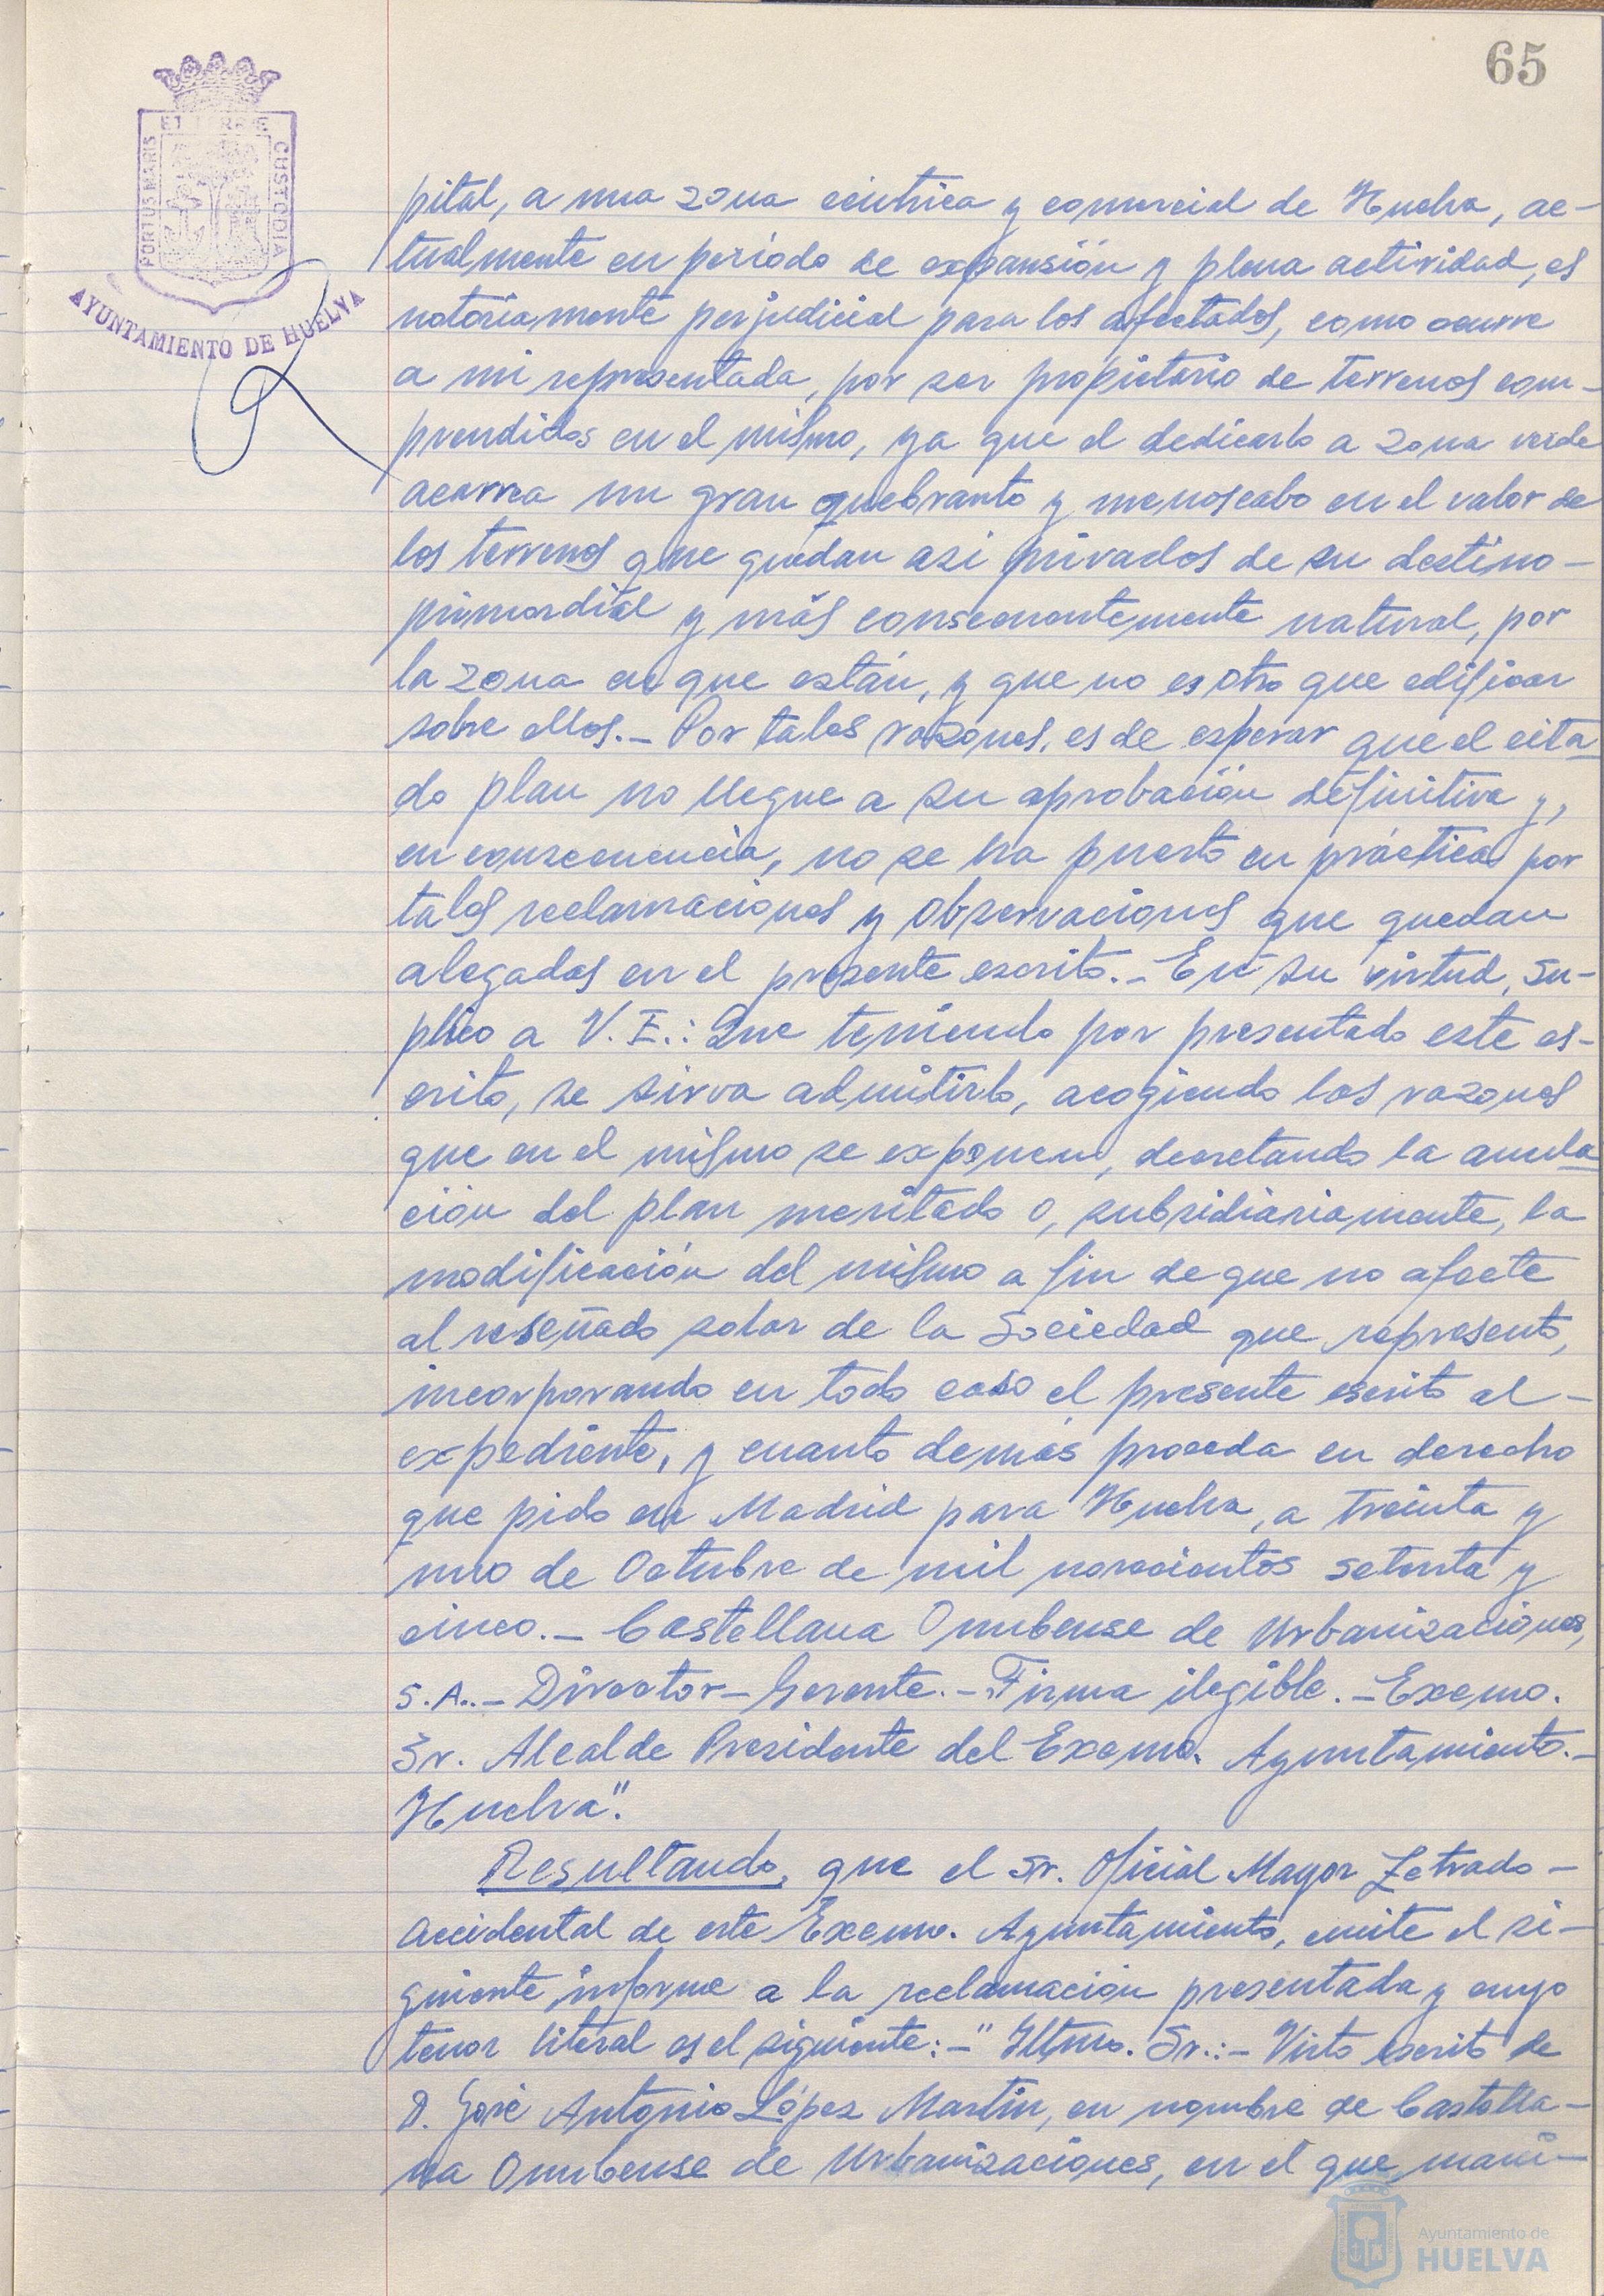 65
PORTUS MARIS ET TERRE CUSTODIA
AYUNTAMIENTO DE HUELVA
pital, a una zona céntrica y comercial de Huelva, ac-
tualmente en período de expansión y plena actividad, es
notoriamente perjudicial para los afectados, como ocurre
a mi representada, por ser propietario de terrenos com-
prendidos en el mismo, ya que el dedicarlo a zona verde
acarrea un gran quebranto y menoscabo en el valor de
los terrenos que quedan asi privados de su destino-
primordial y más consecuentemente natural, por
la zona en que están, y que no es otro que edificar
sobre ellos.- Por tales razones, es de esperar que el cita
do plan no llegue a su aprobación definitiva y,
en consecuencia, no se ha puesto en práctica por
tales reclamaciones y observaciones que quedan
alegadas en el presente escrito.- En su virtud, Su-
plico a V. E.: Que teniendo por presentado este es-
crito, se sirva admitirlo, acogiendo las razones
que en el mismo se exponen, decretando la anula
ción del plan meritado o, subsidiariamente, la
modificación del mismo a fin de que no afecte
al reseñado solar de la Sociedad que represento,
incorporando en todo caso el presente escrito al-
expediente, y cuanto demás proceda en derecho
que pido en Madrid para Huelva, a treinta y
uno de Octubre de mil novecientos setenta y
cinco.- Castellana Onubense de Urbanizaciones,
S.A..- Director-Gerente.- Firma ilegible.- Excmo.
Sr. Alcalde Presidente del Excmo. Ayuntamiento.-
Huelva".
Resultando, que el Sr. Oficial Mayor Letrado-
Accidental de este Excmo. Ayuntamiento, emite el si-
guiente informe a la reclamación presentada y cuyo
tenor literal es el siguiente:-" Iltmo. Sr.:- Visto escrito de
D. José Antonio López Martín, en nombre de Castella-
na Onubense de Urbanizaciones, en el que mani-
Ayuntamiento de
HUELVA